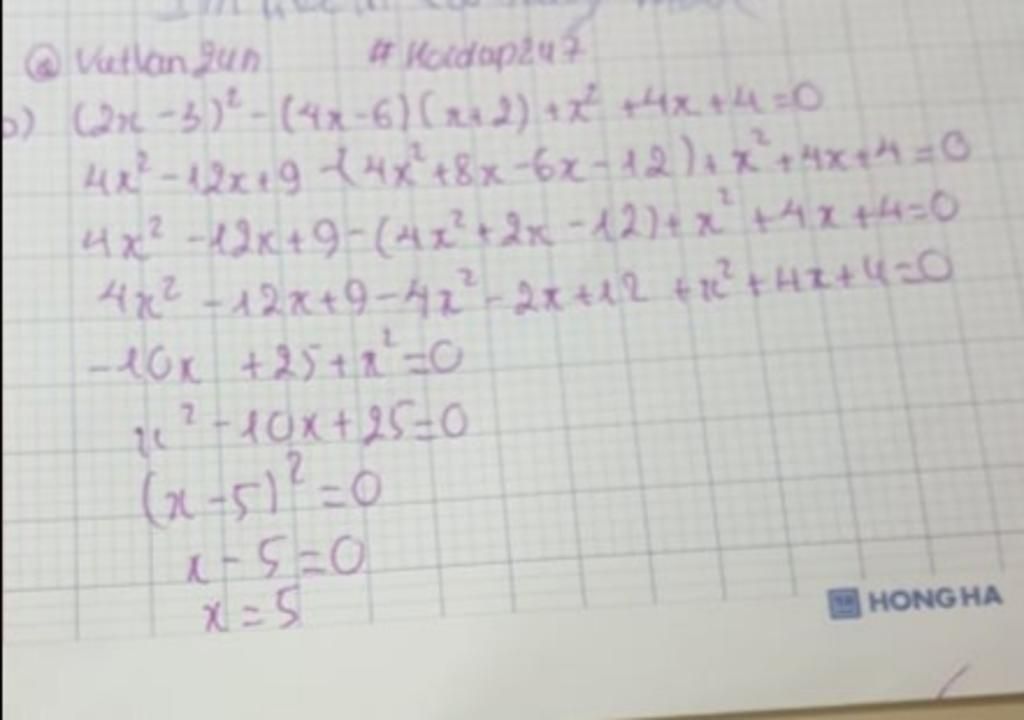 @ Vutlan2un #Hoidap247
b) (2x - 3)² - (4x - 6)(x + 2) + x² + 4x + 4 = 0
4x² - 12x + 9 - (4x² + 8x - 6x - 12) + x² + 4x + 4 = 0
4x² - 12x + 9 - (4x² + 2x - 12) + x² + 4x + 4 = 0
4x² - 12x + 9 - 4x² - 2x + 12 + x² + 4x + 4 = 0
-10x + 25 + x² = 0
x² - 10x + 25 = 0
(x - 5)² = 0
x - 5 = 0
x = 5
HONG HA